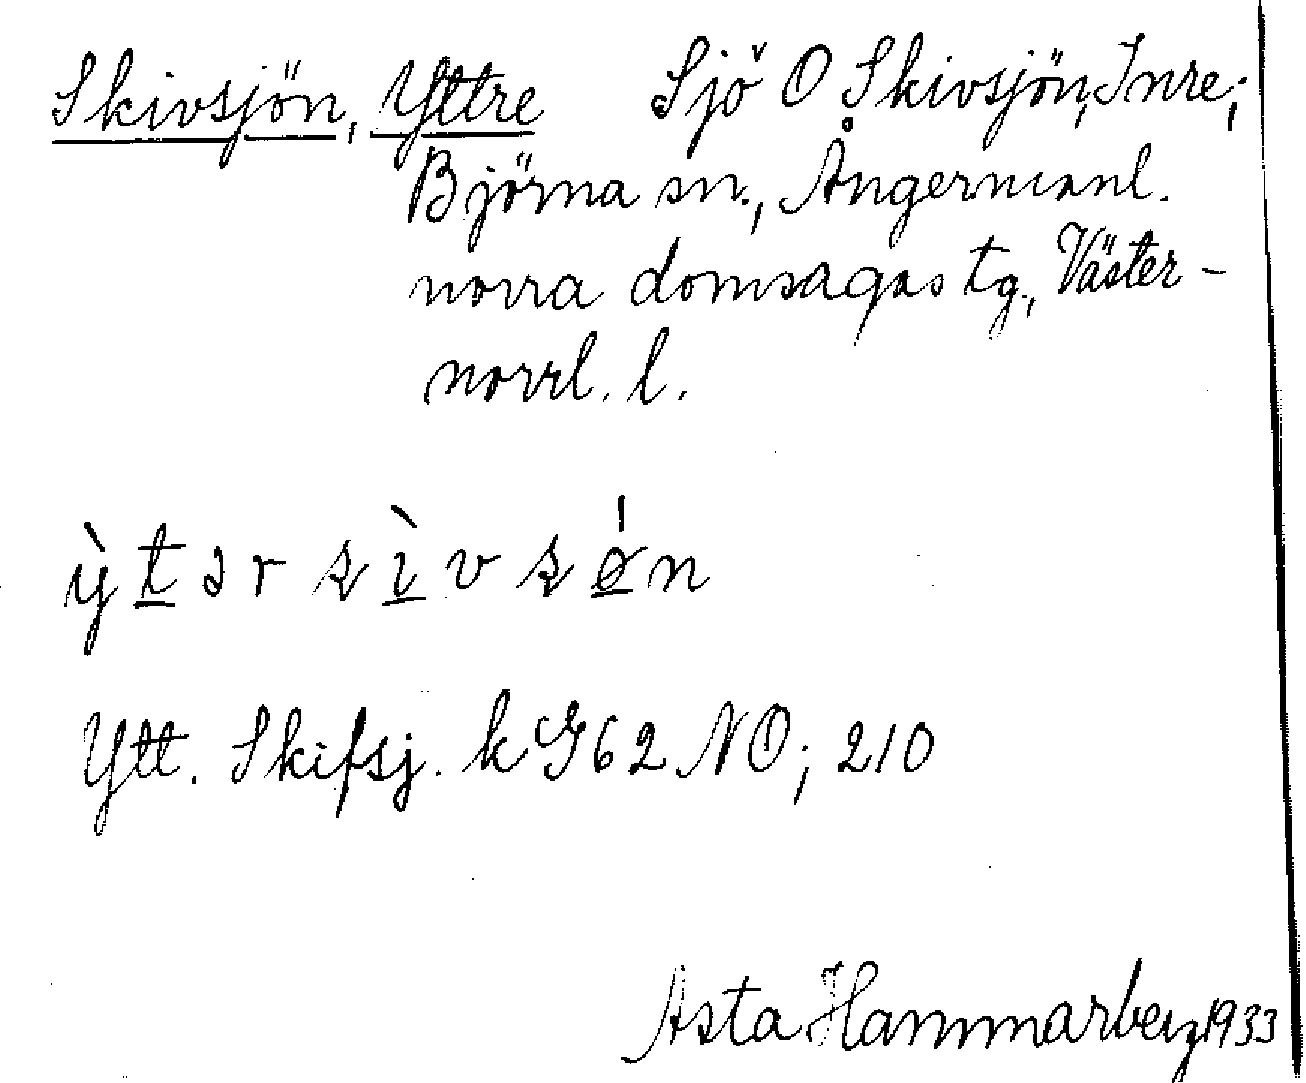 Skivsjön, Yttre Sjö O Skivsjön, Inre;
Björna sn., Ångermanl.
norra domsagas tg., Väster-
norrl. l.
Ytt. Skifsj. k G62 NO; 210
Asta Hammarberg 1933